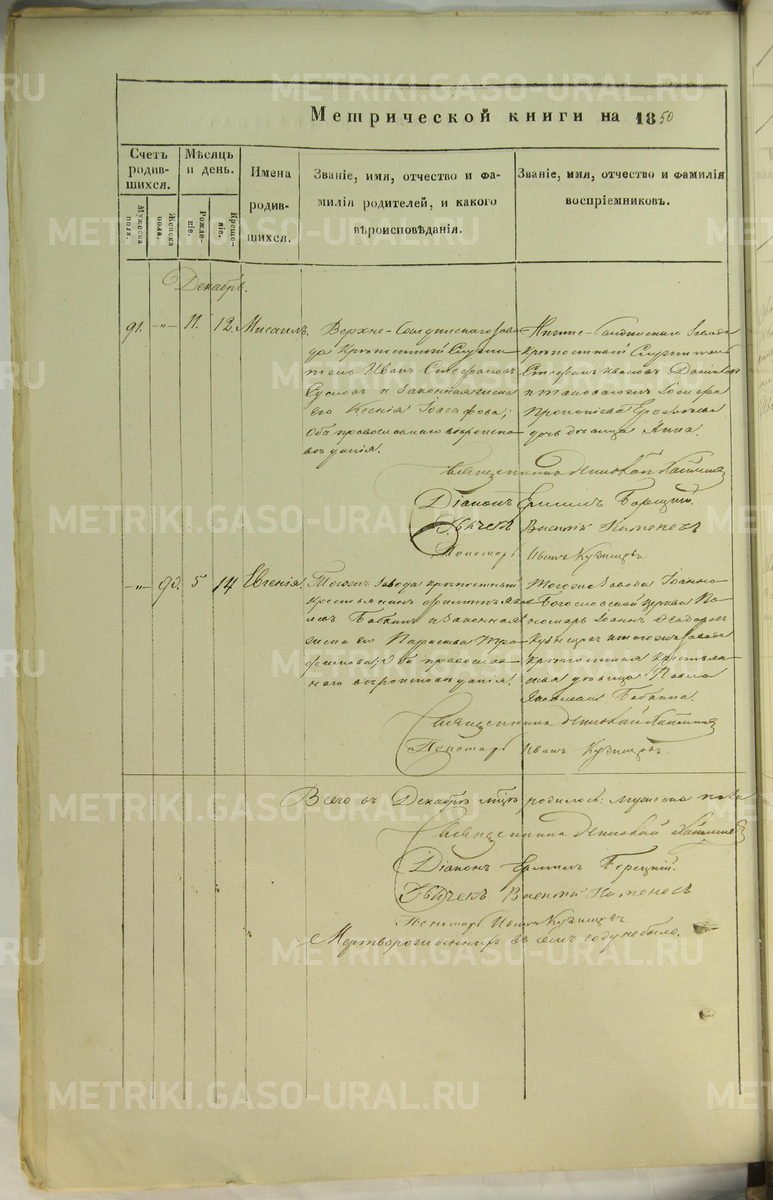 METRIKI.GASO-URAL.RU
Метрической книги на 1850
Счетъ родив-шихся.
Мѣсяцъ и день.
Имена родив-шихся.
Званіе, имя, отчество и фа-
милія родителей, и какого
вѣроисповѣданія.
Званіе, имя, отчество и фамилія
воспріемниковъ.
Мужеска пола.
Женска пола.
Рожде-ніе.
Креще-ніе.
Декабрь.
91. -"- 11. 12. Мисаилъ.
Верхне-Салдинскаго заво-
да крѣпостный служи-
тель Иванъ Стефановъ
Сусловъ и законная жена
его Ксенія Іоасафова;
оба православнаго вѣроиспо-
вѣданія.
Нижне-Салдинскаго завода
крѣпостный служитель
Стефанъ
дочь дѣвица Анна.
Священникъ
Діаконъ Ермилъ Борецкій.
Дьячекъ
Пономарь Иванъ Кузнецовъ
-"- 92. 5 14 Евгенія.
Тогожъ завода крѣпостный
крестьянинъ Филиппъ Яков
левъ Бабкинъ и законная
жена его Параскева Тро-
фимова; оба православ-
наго вѣроисповѣданія.
Тогоже завода Іоанно
Богословской церкви По-
номарь Іоаннъ Ѳеодоровъ
Кузнецовъ и тогожъ завода
крѣпостная крестьян-
ская дѣвица Павла
Яковлева Бабкина.
Священникъ
Пономарь Иванъ Кузнецовъ.
Всего въ Декабрѣ мцѣ родилось: мужеска пола
Священникъ
Діаконъ Ермилъ Борецкій.
Дьячекъ
Пономарь Иванъ Кузнецовъ
Мертворожденныхъ въ семъ году не было.